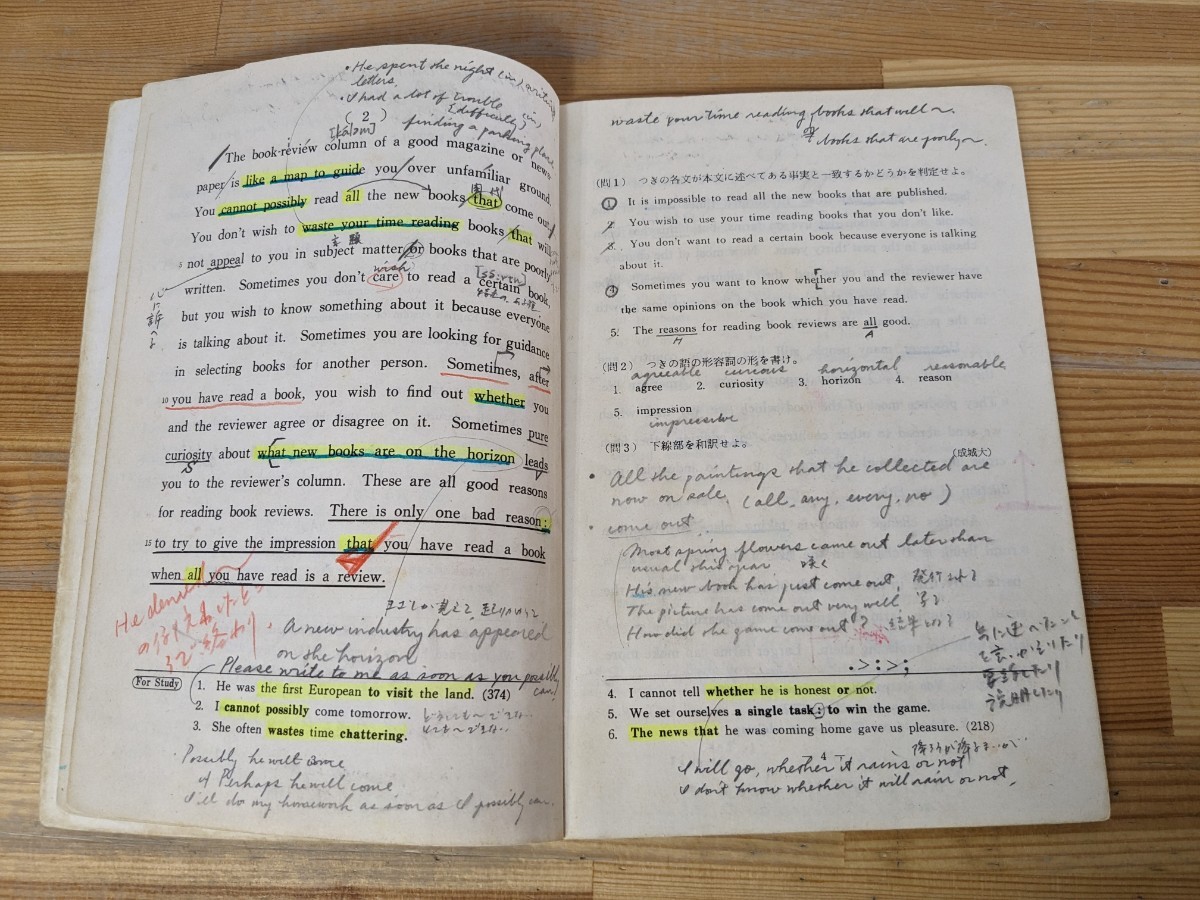 • He spent the night (in) writing
letters.
• I had a lot of trouble
(difficulty) (in)
finding a parking place.
( 2 )
The book-review column of a good magazine or news-
paper is like a map to guide you over unfamiliar ground.
You cannot possibly read all the new books that come out.
You don't wish to waste your time reading books that will
5 not appeal to you in subject matter or books that are poorly
主題
written. Sometimes you don't care to read a certain book,
wish
but you wish to know something about it because everyone
is talking about it. Sometimes you are looking for guidance
in selecting books for another person. Sometimes, after
10 you have read a book, you wish to find out whether you
and the reviewer agree or disagree on it. Sometimes pure
curiosity about what new books are on the horizon leads
S V
you to the reviewer's column. These are all good reasons
for reading book reviews. There is only one bad reason:
15 to try to give the impression that you have read a book
when all you have read is a review.
A new industry has appeared
on the horizon
Please write to me as soon as you possibly
can.
For Study
1. He was the first European to visit the land. (374)
2. I cannot possibly come tomorrow.
3. She often wastes time chattering.
Possibly he will come
Perhaps he will come.
I'll do my homework as soon as I possibly can.
waste your time reading books that will ~.
books that are poorly ~.
(問1) つぎの各文が本文に述べてある事実と一致するかどうかを判定せよ。
1. It is impossible to read all the new books that are published.
2. You wish to use your time reading books that you don't like.
3. You don't want to read a certain book because everyone is talking
about it.
4. Sometimes you want to know whether you and the reviewer have
the same opinions on the book which you have read.
5. The reasons for reading book reviews are all good.
(問2) つぎの語の形容詞の形を書け。
agreeable curious horizontal reasonable
1. agree 2. curiosity 3. horizon 4. reason
5. impression
impressive
(問3) 下線部を和訳せよ。
(成城大)
• All the paintings that he collected are
now on sale. (all, any, every, no)
• come out
Most spring flowers came out later than
usual this year 咲く
His new book has just come out. 発行される
The picture has come out very well.
How did the game come out?
.>:>;
4. I cannot tell whether he is honest or not.
5. We set ourselves a single task: to win the game.
6. The news that he was coming home gave us pleasure. (218)
I will go, whether it rains or not
I don't know whether it will rain or not.